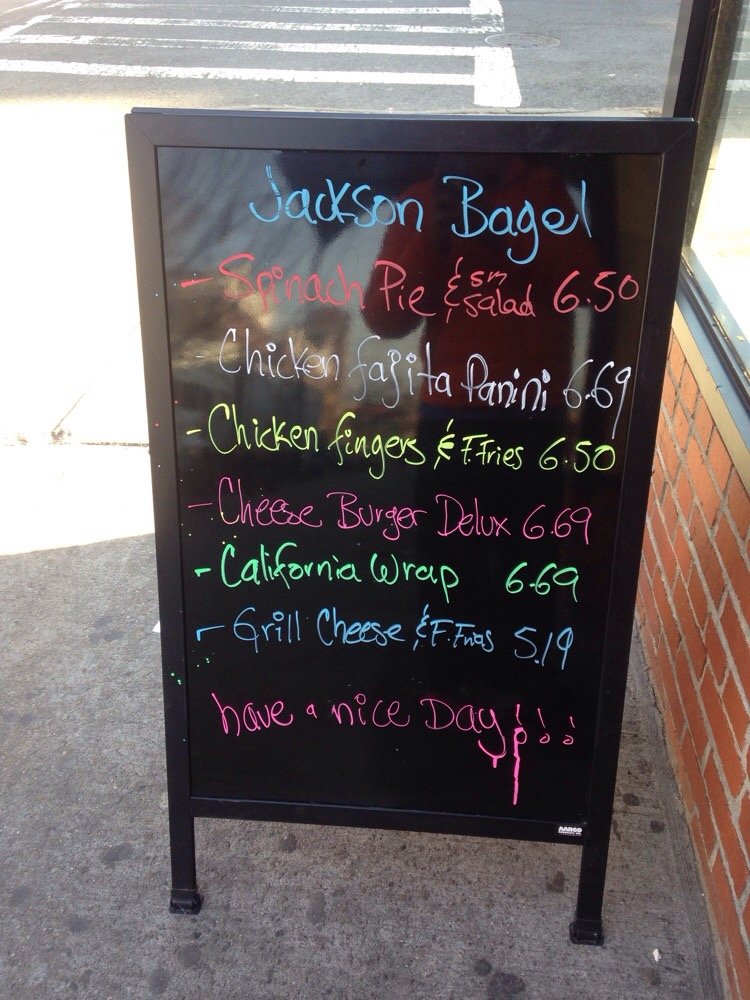 Jackson Bagel
- Spinach Pie & sm salad 6.50
- Chicken fajita Panini 6.69
- Chicken fingers & F.Fries 6.50
- Cheese Burger Delux 6.69
- California Wrap 6.69
- Grill Cheese & F.Fries 5.19
have a nice Day!!!
AARCO